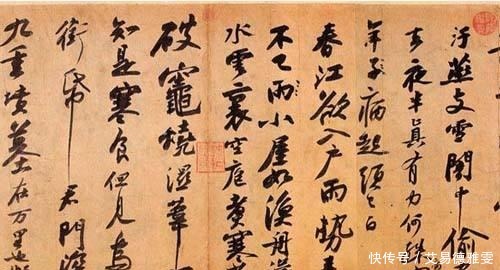 汙燕支雪闇中偷
去夜半真有力何殊
年子病起頭已白
春江欲入户雨勢来
不已雨小屋如漁舟
水雲裏空庖煮寒
破竈燒濕葦
知是寒食但見烏
銜帋君門深
九重墳墓在万里也
快传号 / 艾易德雅雯